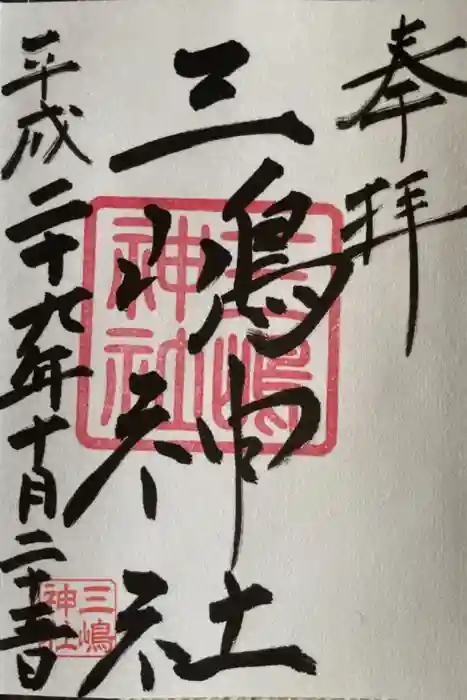 奉拝
三嶋神社
三嶋
神社
平成二十九年十月二十五日
三嶋
神社